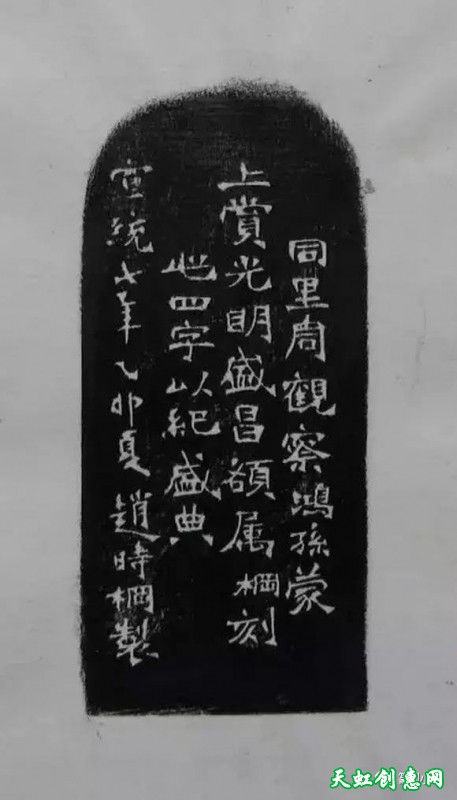 同里周觀察鴻孫蒙
上賞光明盛昌額属棡刻
此四字以紀盛典
宣統七年乙卯夏趙時棡製
天虹创意网